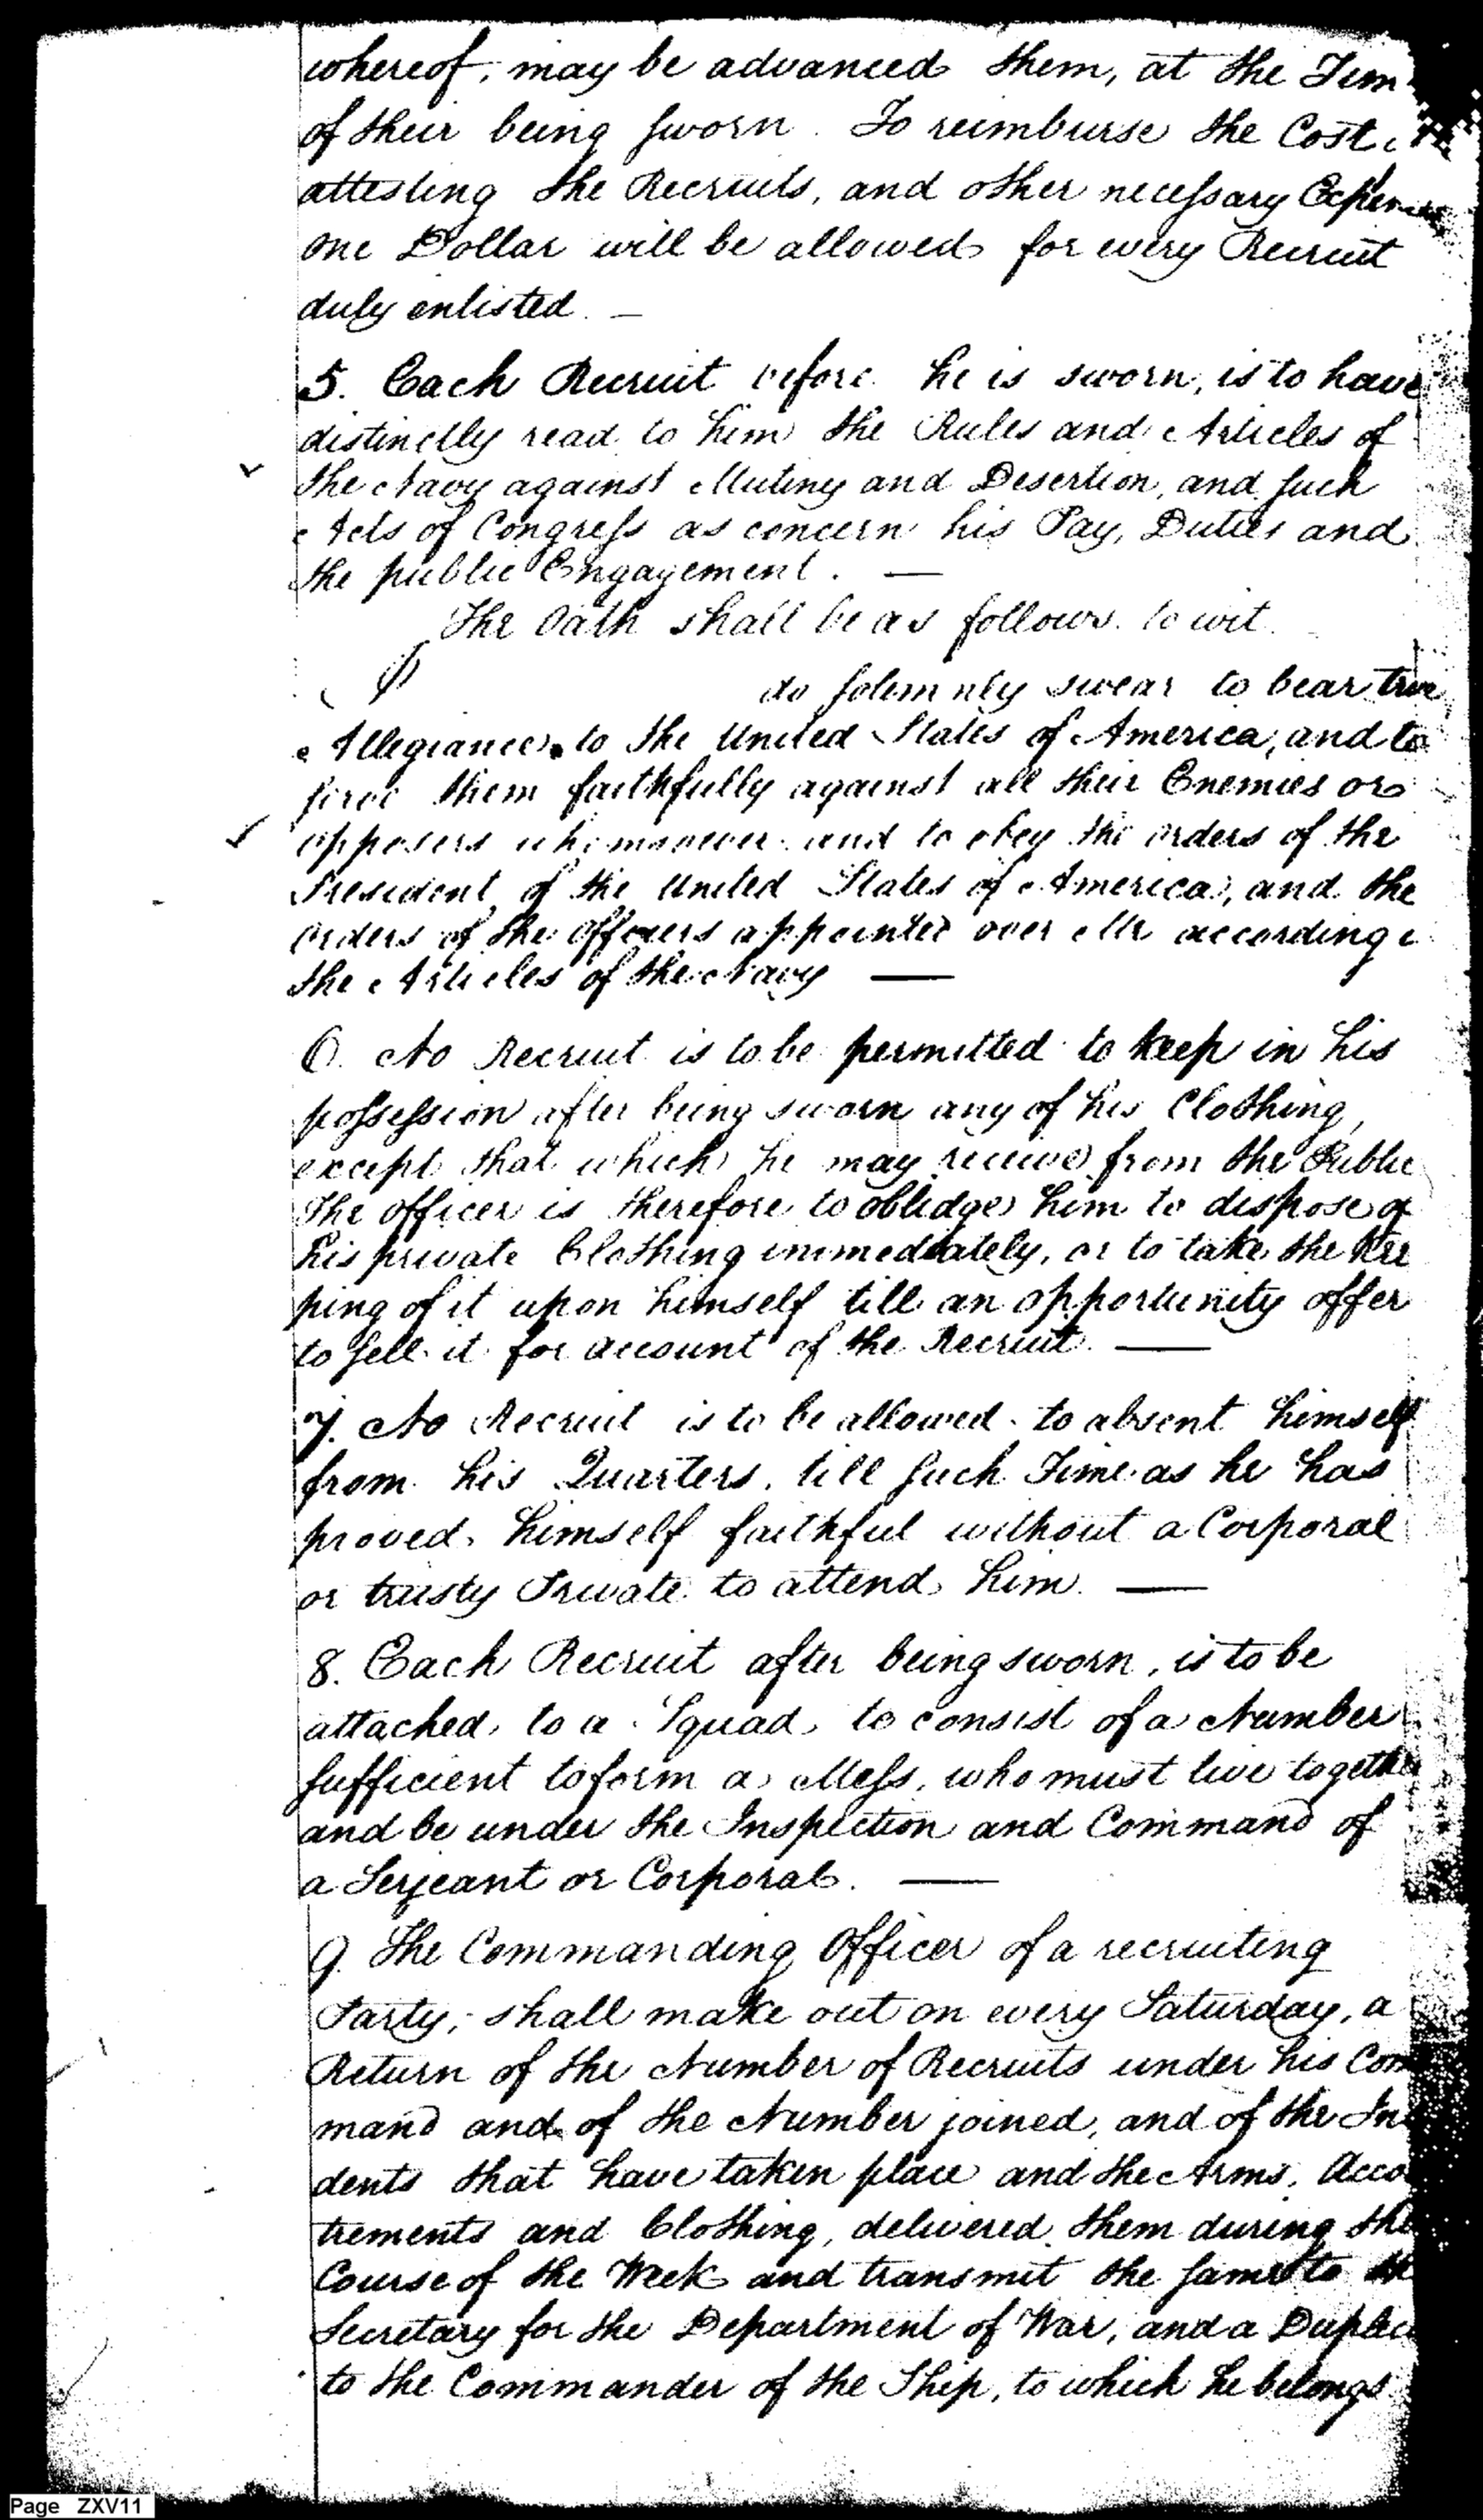 whereof, may be advanced them, at the Tim
of their being sworn. To reimburse the Cost
attesting the Recruits, and other necessary Expences
one Dollar will be allowed for every Recruit
duly enlisted. —
5. Each Recruit before he is sworn, is to have
distinctly read to him the Rules and Articles of
the Navy against Mutiny and Desertion, and such
Acts of Congress as concern his Pay, Duties and
the public Engagement. —
The Oath shall be as follows. to wit.
I do solemnly swear to bear true
Allegiance to the United States of America, and to
serve them faithfully against all their Enemies or
opposers whomsoever and to obey the orders of the
President of the United States of America, and the
orders of the officers appointed over Me according
the Articles of the Navy —
6. No Recruit is to be permitted to keep in his
possession after being sworn any of his Clothing,
except that which he may receive from the Public
The officer is therefore to oblidge him to dispose of
his private Clothing immediately, or to take the kee
ping of it upon himself till an opportunity offer
to sell it for account of the Recruit. —
7. No Recruit is to be allowed to absent himself
from his Quarters, till such Time as he has
proved himself faithful without a Corporal
or trusty Private to attend him. —
8. Each Recruit after being sworn, is to be
attached, to a Squad, to consist of a Number
sufficient to form a Mess, who must live together
and be under the Inspection and Command of
a Serjeant or Corporal. —
9. The Commanding Officer of a recruiting
Party, shall make out on every Saturday, a
Return of the Number of Recruits under his Com
mand and of the Number joined, and of the In
dents that have taken place and the Arms, Acco
trements and Clothing, delivered them during the
Course of the Week and transmit the same to th
Secretary for the Department of War, and a Duplic
to the Commander of the Ship, to which he belongs
Page ZXV11